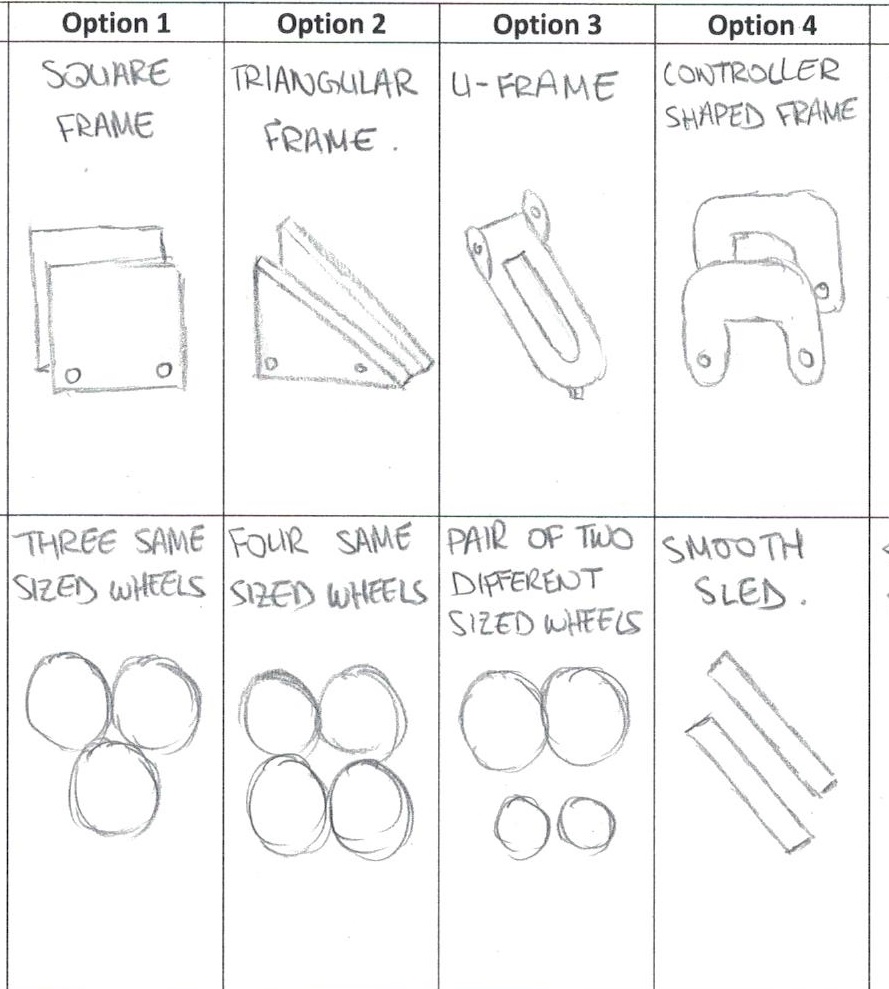 Option 1
Option 2
Option 3
Option 4
SQUARE
FRAME
TRIANGULAR
FRAME.
U-FRAME
CONTROLLER
SHAPED FRAME
THREE SAME
SIZED WHEELS
FOUR SAME
SIZED WHEELS
PAIR OF TWO
DIFFERENT
SIZED WHEELS
SMOOTH
SLED.